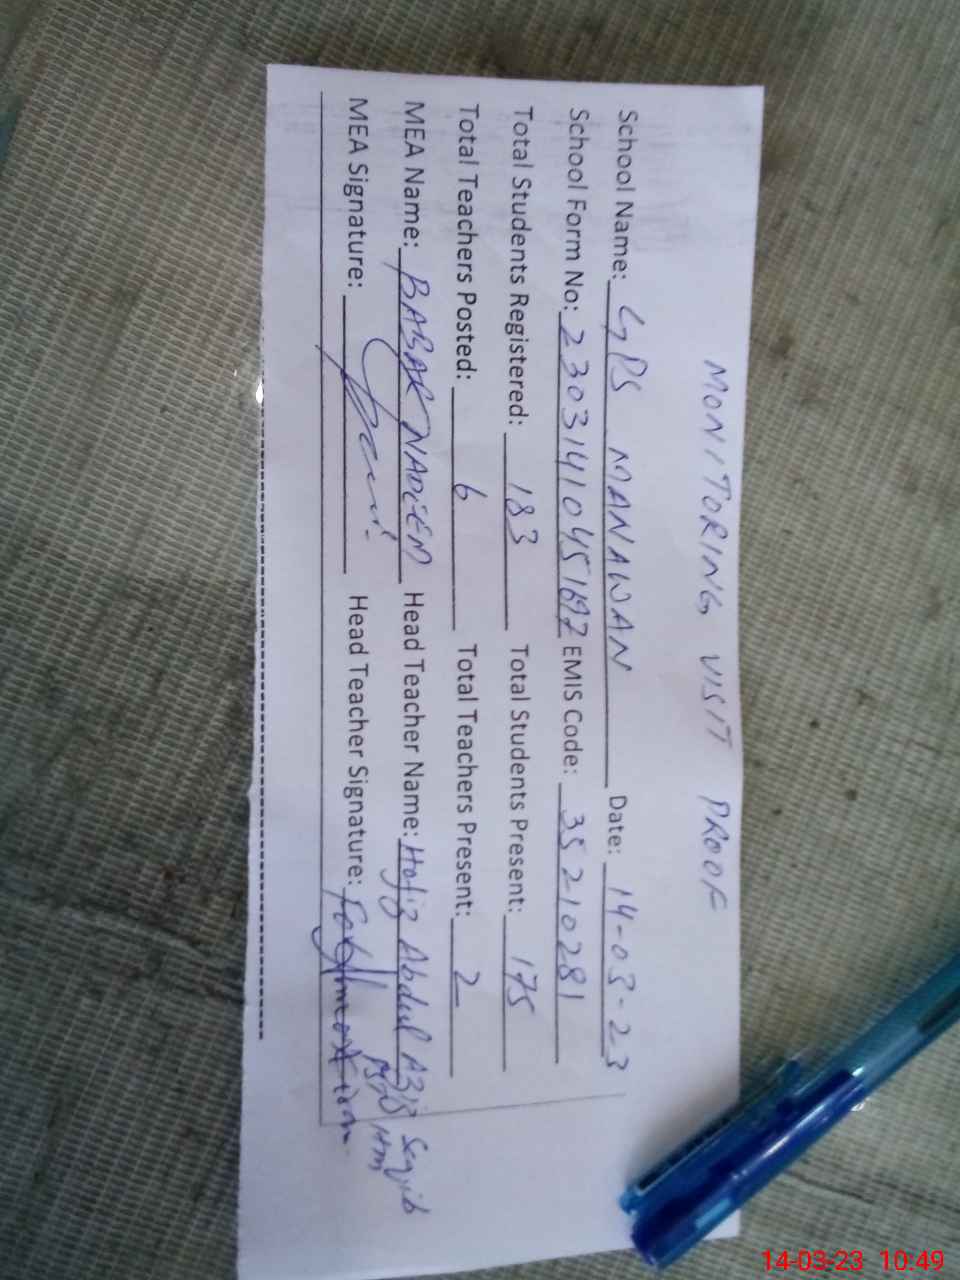 MONITORING VISIT PROOF
School Name: GPS MANAWAN Date: 14-03-23
School Form No: 23031410451692 EMIS Code: 35210281
Total Students Registered: 183 Total Students Present: 175
Total Teachers Posted: 6 Total Teachers Present: 2
MEA Name: BABAR NADEEM Head Teacher Name: Hafiz Abdul Aziz Saqib
MEA Signature: Head Teacher Signature:
14-03-23 10:49